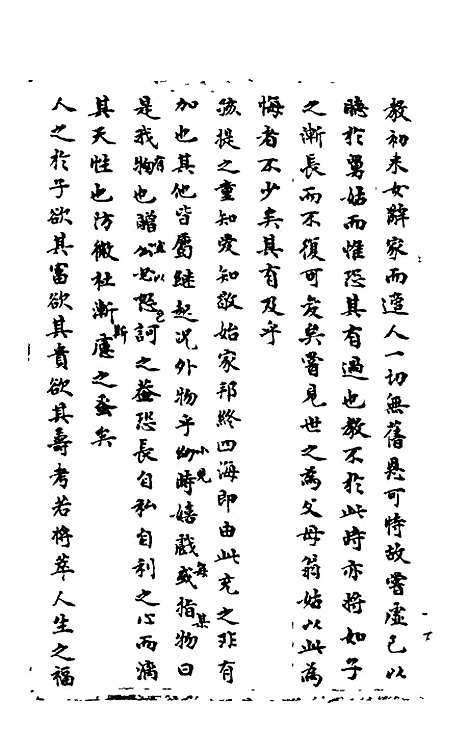 教初来女辭家而適人一切無舊恩可恃故嘗虛己以
聽於舅姑而惟恐其有過也教不於此時亦將如子
之漸長而不復可爰矣嘗見世之為父母翁姑以此為
悔者不少矣其有及乎
孩提之童知愛知敬始家邦終四海即由此充之非有
加也其他皆屬継起况外物乎幼時嬉戲或指物曰
小兒
每
某
是我物也
有
怒訶之蓋恐長自私自利之心而漓
其天性也防微杜漸慮之蚤矣
斯
人之於子欲其富欲其貴欲其壽考若將萃人生之福